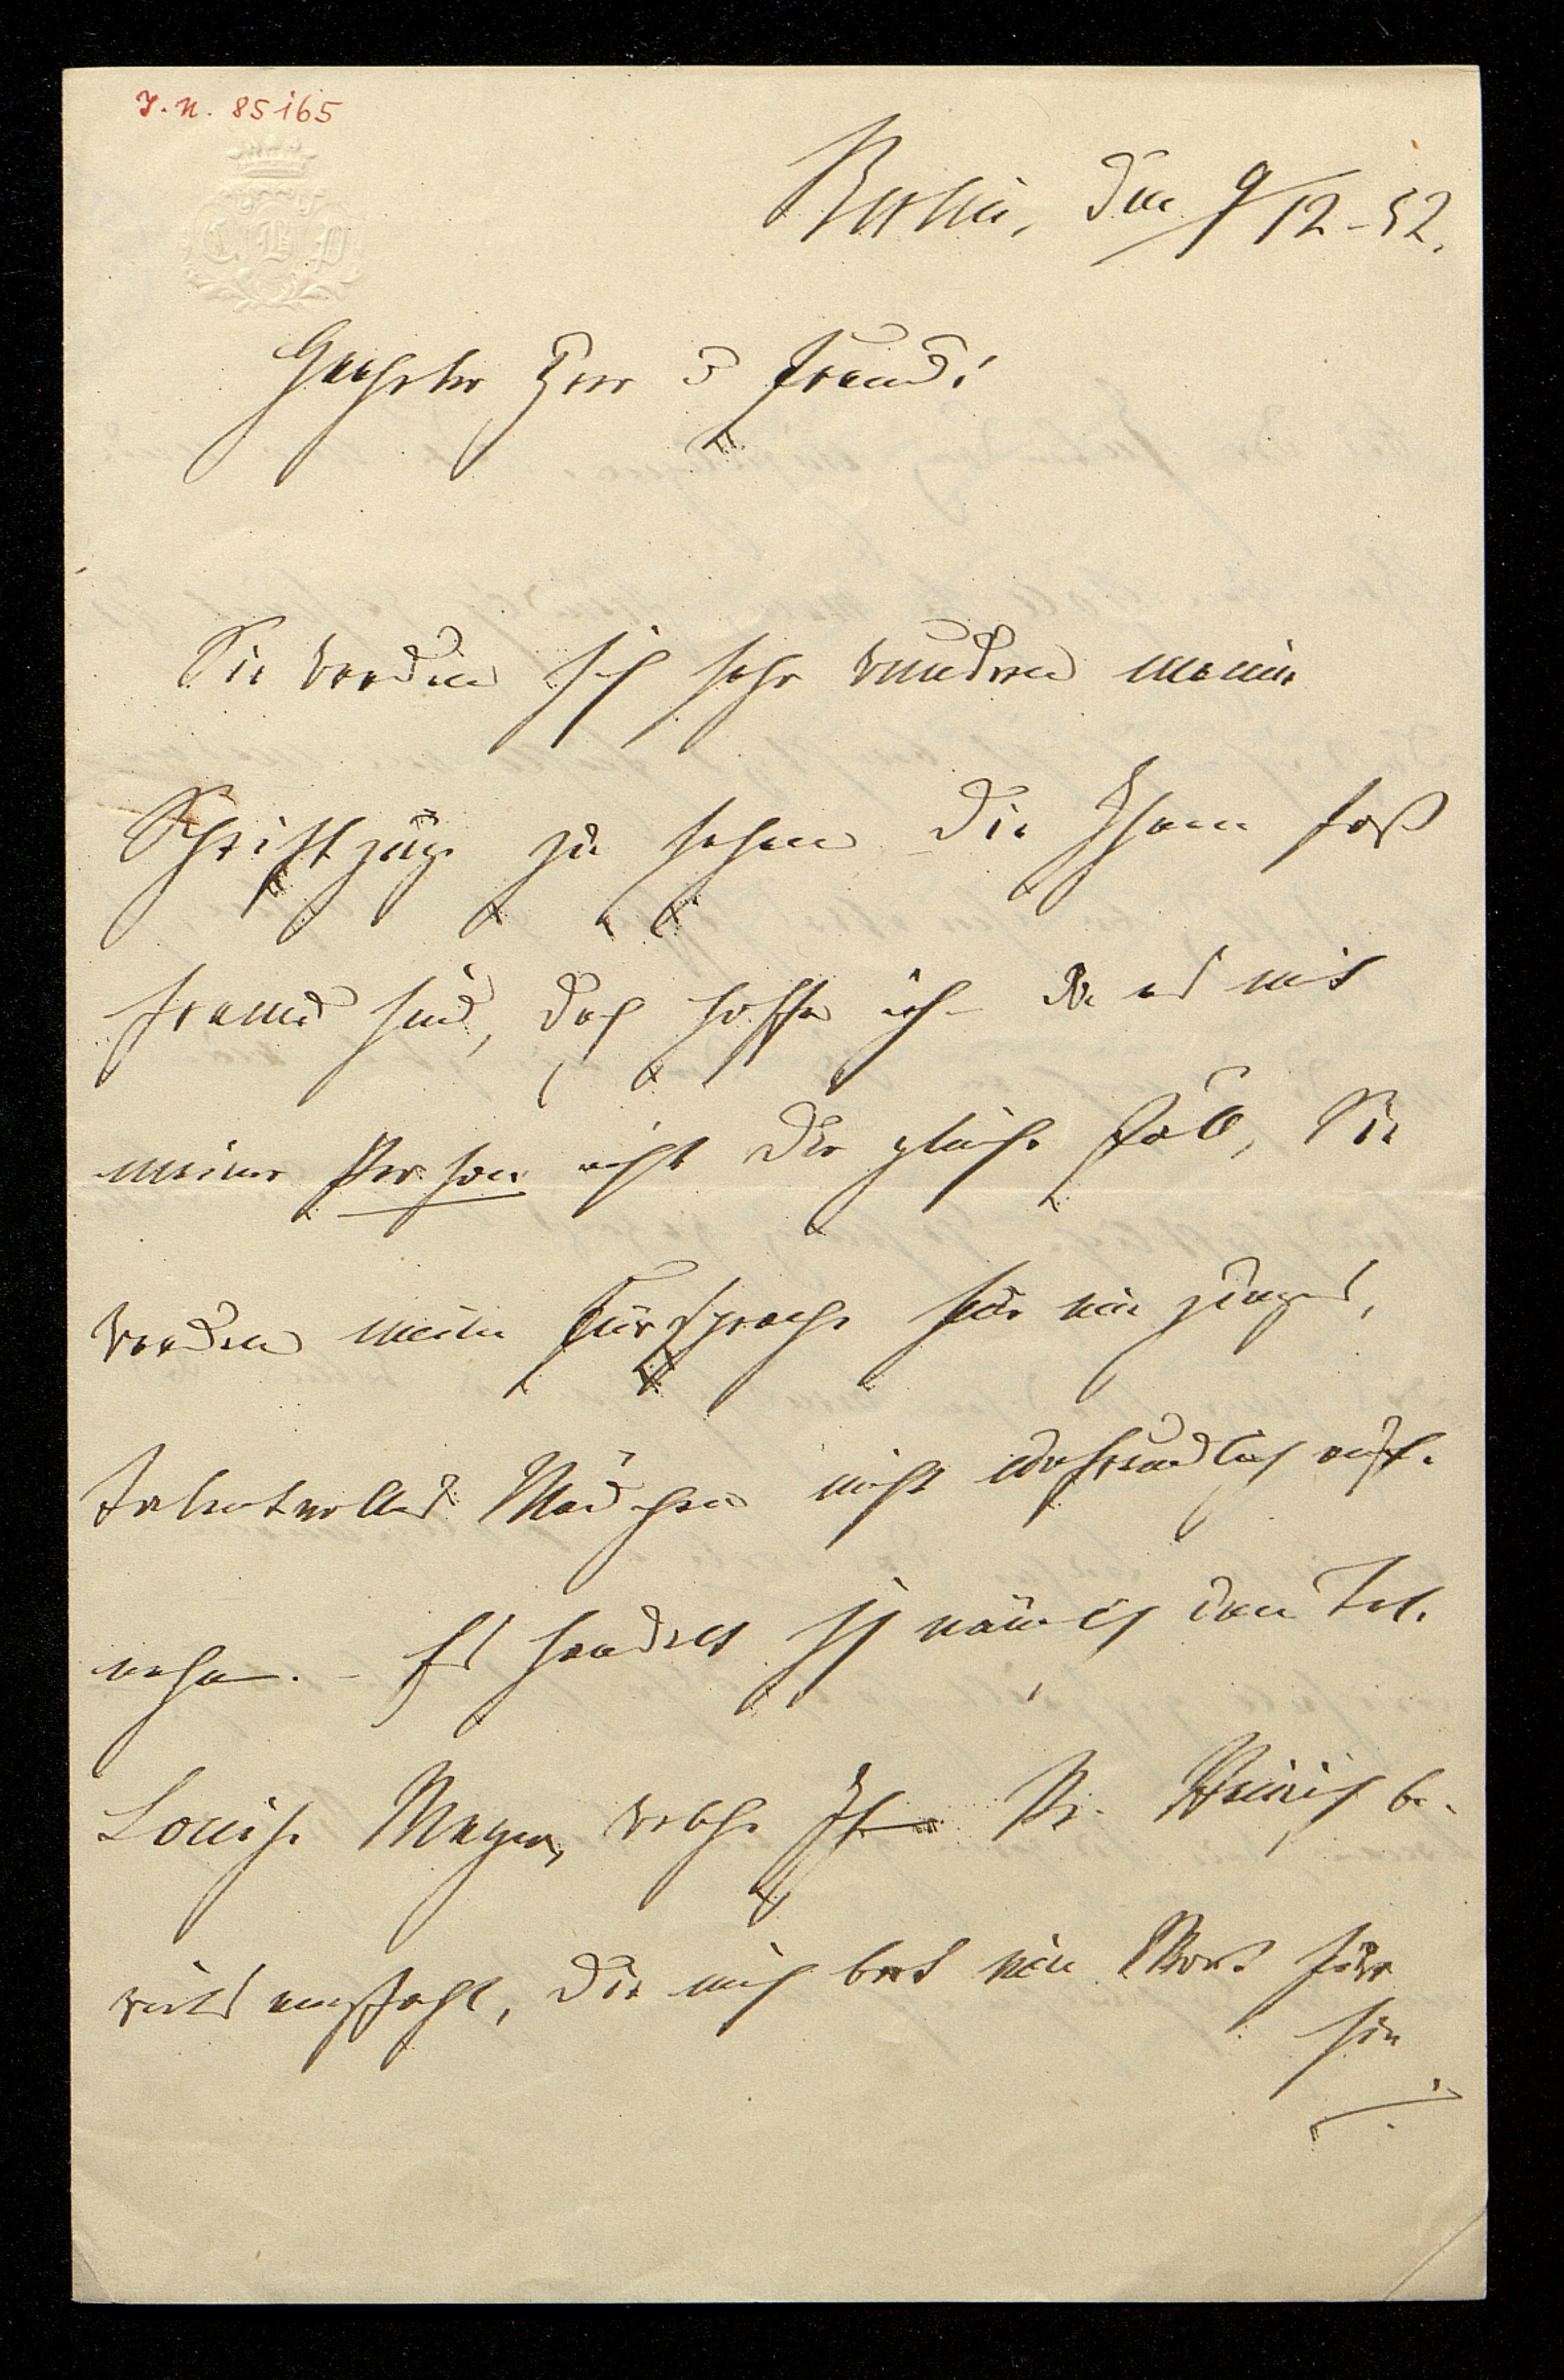 J. N. 85165
C V P
Berlin, den 9/12 - 52.
Geehrter Herr u Freund!
Sie werden sich sehr wundern meine
Schriftzüge zu sehen die Ihnen fast
fremd sind, doch hoffe ich – da es mit
meiner Person nicht der gleiche Fall, Sie
werden meine Fürsprache für ein junges,
talentvolles Mädchen nicht unfreundlich auf-
nehmen. – Es handelt sich nämlich um Frl.
Louise Meyer, welche Ihnen Hr. be-
reits empfahl, die mich bat ein Wort für
sie